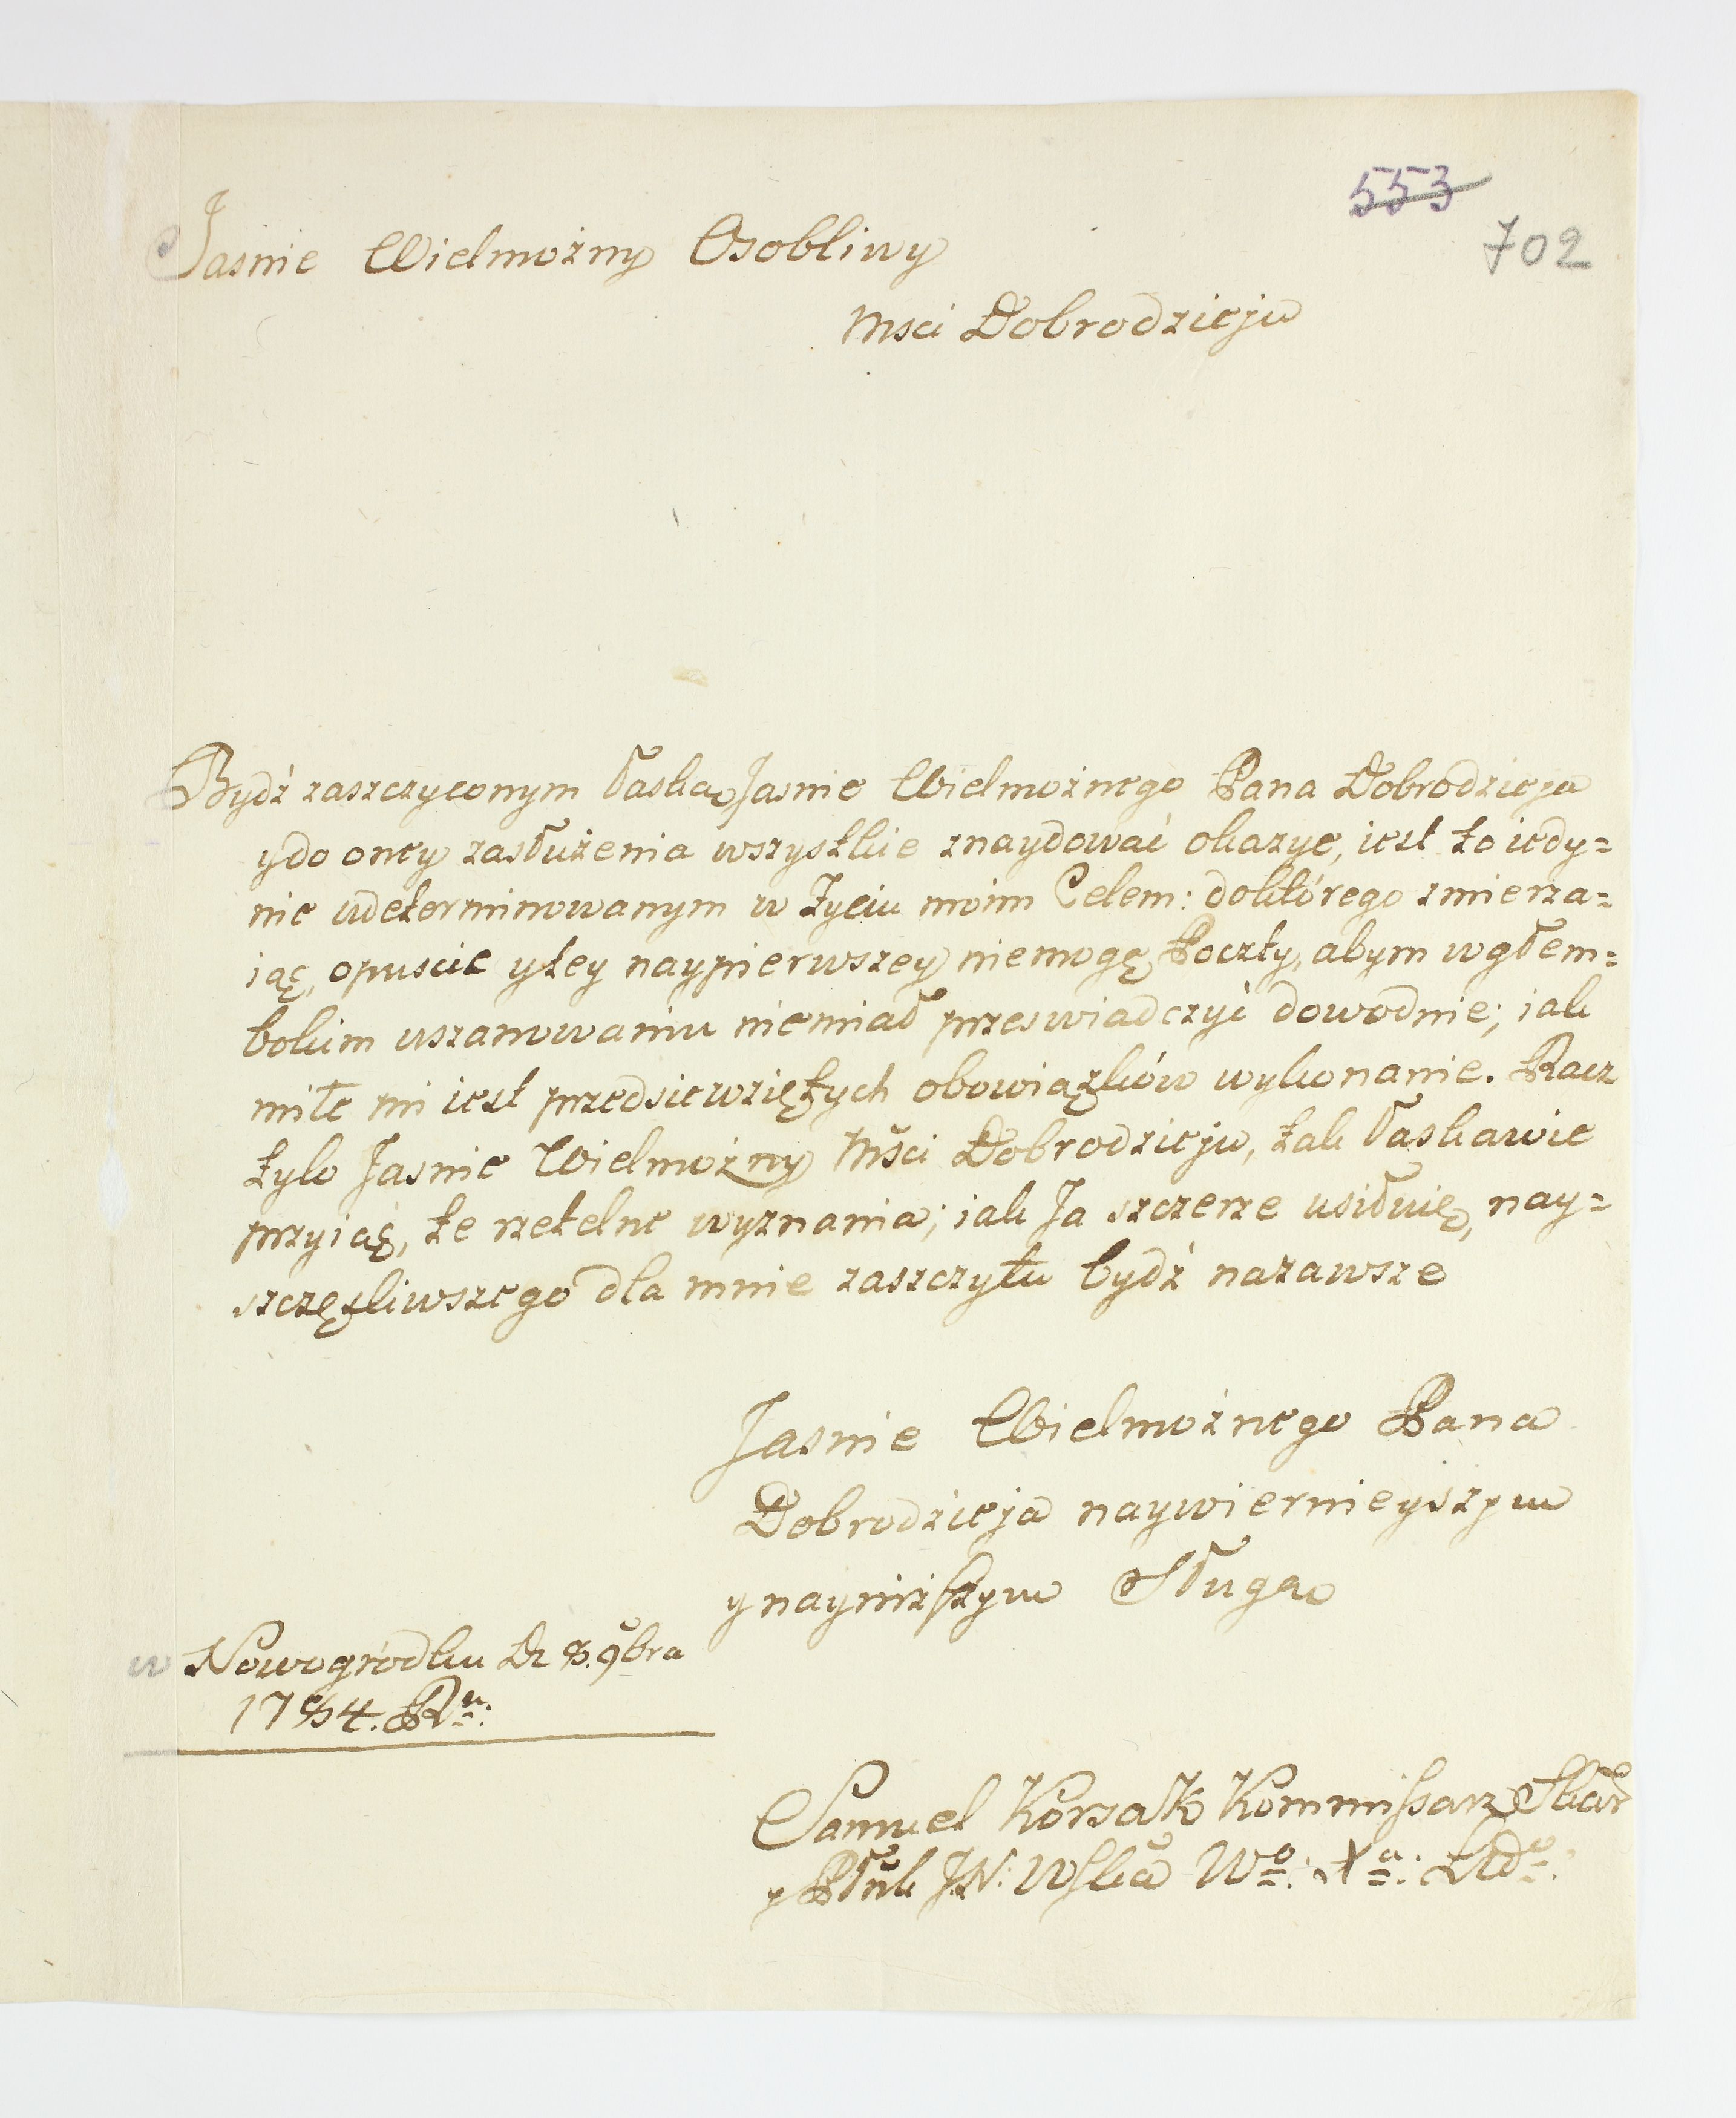 553
702
Jasnie Wielmożny Osobliwy
Msci Dobrodzieju
Bydź zaszczyconym łaską Jasnie Wielmożnego Pana Dobrodzieja
y do oney zasłużenia wszystkie znaydować okazye, iest to iedy=
nie udeterminowanym w życiu moim Celem: do którego zmierza=
iąc, opuscic y tey naypierwszey niemogę Poczty, abym w głem=
bokim uszanowaniu niemiał przeswiadczyć dowodnie; iak
miłe mi iest przedsiewziętych obowiązków wykonanie. Racz
tylo Jasnie Wielmożny Mści Dobrodzieju, tak łaskawie
przyiąć, te rzetelne wyznania; iak Ja szczerze usiłuię, nay=
szczęśliwszego dla mnie zaszczytu bydź nazawsze
Jasnie Wielmożnego Pana
Dobrodzieja naywiernieyszym
y nayniższym Sługą
w Nowogródku D: 8. 9bra
1784. Ru:
Samuel Korsak Kommissarz Skar
y Płuk J.N. Wska Wo: Xa: Lido: